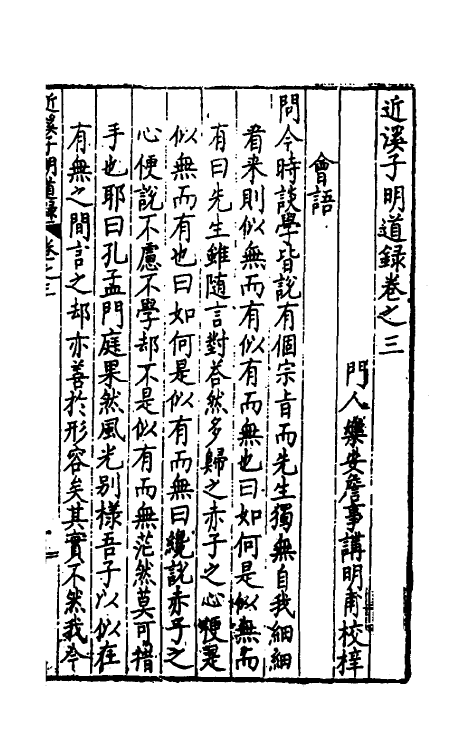 近溪子明道録卷之三
門人樂安詹事講明甫校梓
會語
問今時談學皆說有個宗旨而先生獨無自我細細
看来則似無而有似有而無也曰如何是似無而
有曰先生雖随言對荅然多歸之赤子之心便是
似無而有也曰如何是似有而無曰纔說赤子之
心便說不慮不學却不是似有而無茫然莫可措
手也耶曰孔孟門庭果然風光别様吾子以似在
有無之間言之却亦善於形容矣其實不然我今
近溪子明道録 卷之三